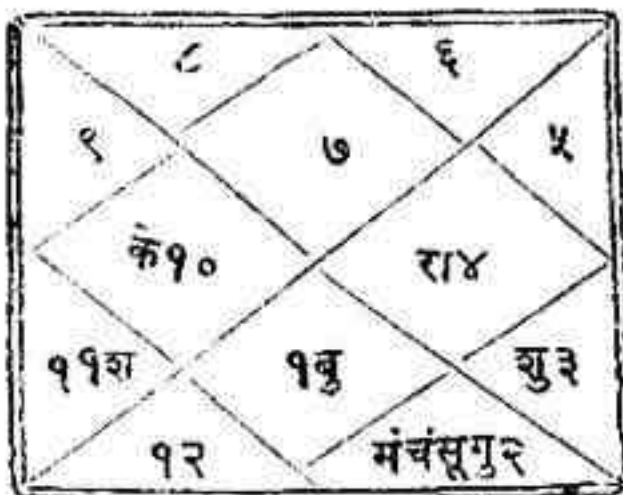 ८ ६
९ ७ ५
के१० रा४
११श १बु शु३
१२ मंचंसूगु२